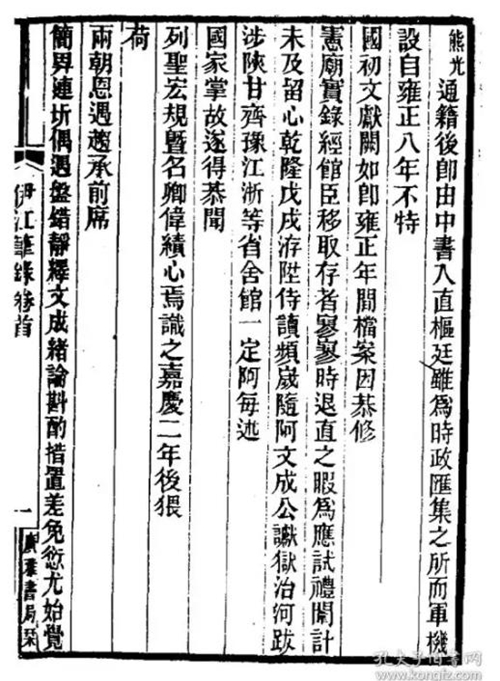 熊光通籍後卽由中書入直樞廷雖爲時政匯集之所而軍機
設自雍正八年不特
國初文獻闕如卽雍正年間檔案因恭修
憲廟實錄經館臣移取存者寥寥時退直之暇爲應試禮闈計
未及留心乾隆戊戌洊陞侍讀頻歲隨阿文成公讞獄治河跋
涉陝甘齊豫江浙等省舍館一定阿每述
國家掌故遂得恭聞
列聖宏規曁名卿偉績心焉識之嘉慶二年後猥
荷
兩朝恩遇趨承前席
簡畀連圻偶遇盤錯靜釋文成緒論斟酌措置差免愆尤始覺
伊江筆錄卷首
一
廣雅書局栞
孔夫子旧书网
www.kongfz.com